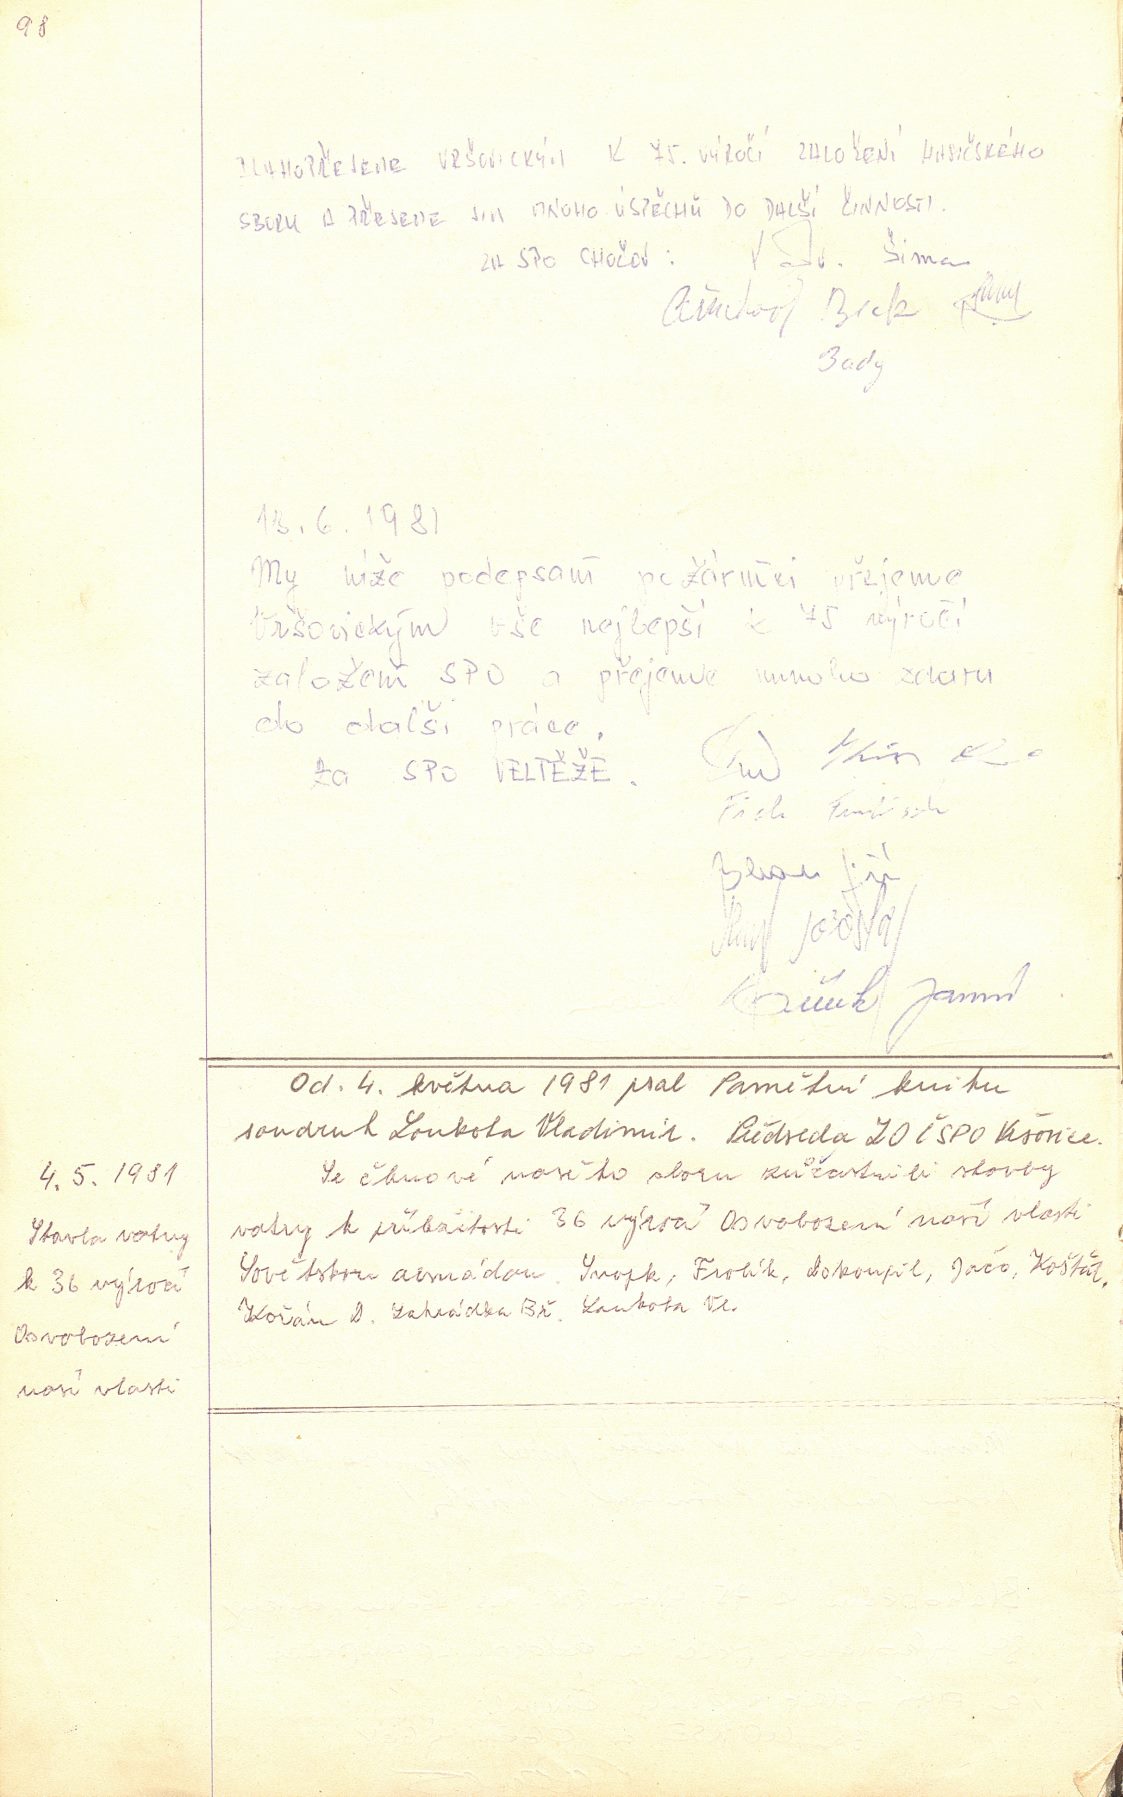 98
BLAHOPŘEJEME VRŠOVICKÝM K 75. VÝROČÍ ZALOŽENÍ HASIČSKÉHO
SBORU A PŘEJEME JIM MNOHO ÚSPĚCHŮ DO DALŠÍ ČINNOSTI.
ZA SPO CHOČEŇ : Šima
Bady
13. 6. 1981
My níže podepsaní požárníci přejeme
Vršovickým vše nejlepší k 75 výročí
založení SPO a přejeme mnoho zdaru
do další práce.
Za SPO VELTĚŽE.
Jiří
Od. 4. května 1981 psal Pamětní knihu
soudruh Loukota Vladimir. Předseda ZO ČSPO Vršovice.
4. 5. 1981
Stavba vatry
k 36 výročí
Osvobození
naší vlasti
Se členové našeho sboru zúčastnili stavby
vatry k příležitosti 36 výročí Osvobození naší vlasti
Sovětskou armádou. Frolík, Dokoupil, Jačo, Košťál,
Kořán D. Zahrádka Bř. Loukota Vl.